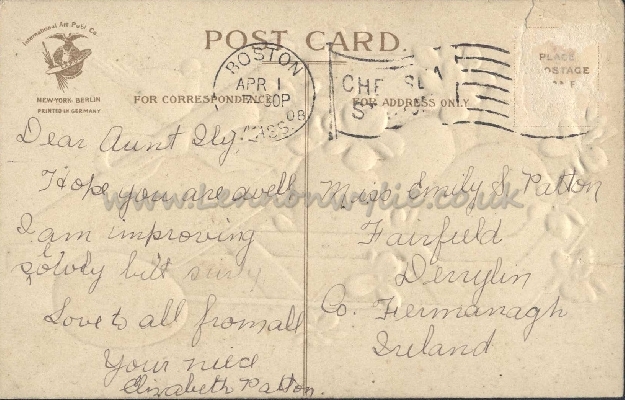 International Art Publ. Co.
NEW-YORK, BERLIN
PRINTED IN GERMANY
POST CARD.
FOR CORRESPONDENCE
FOR ADDRESS ONLY
PLACE
POSTAGE
BOSTON
APR 1
30P
08
MASS.
CHELSEA
Dear Aunt
Hope you are well
I am improving
slowly but surly
Love to all from all
Your niece
Elizabeth Patton.
Miss Emily S. Patton
Fairfield
Derrylin
Co. Fermanagh
Ireland
www.lennonwylie.co.uk